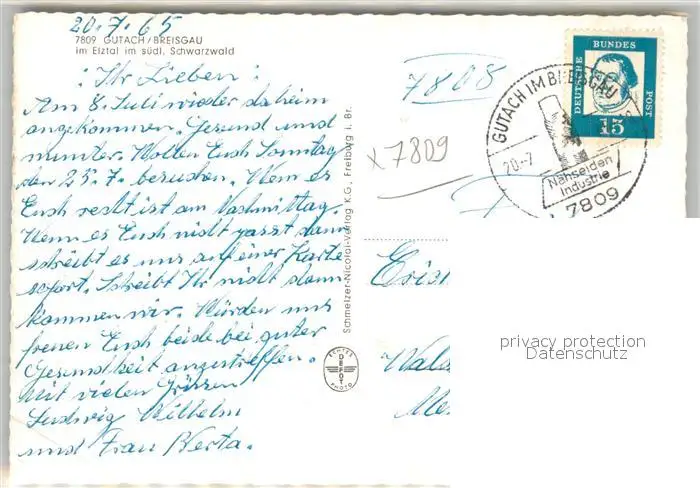 20.7.65
7809 GUTACH/BREISGAU
im Elztal im südl. Schwarzwald
: Ihr Lieben :
Am 8. Juli wieder daheim
angekommen. Gesund und
munter. Wollen Euch Sonntag
den 25.7. besuchen. Wenn es
Euch recht ist am Nachmittag.
Wenn es Euch nicht passt dann
schreibt es uns auf einer Karte
sofort. Schreibt Ihr nicht dann
kommen wir. Würden uns
freuen Euch beide bei guter
Gesundheit anzutreffen.
Mit vielen Grüssen
Ludwig Wilhelm
und Frau Berta.
Schmelzer-Nicolai-Verlag K.G., Freiburg i. Br.
ECHTES
DEFOT
PHOTO
7808
x 7809
GUTACH IM BREISGAU
20.-7
Nähseiden
Industrie
7809
DEUTSCHE
BUNDES
POST
15
Eric
Wald
privacy protection
Datenschutz